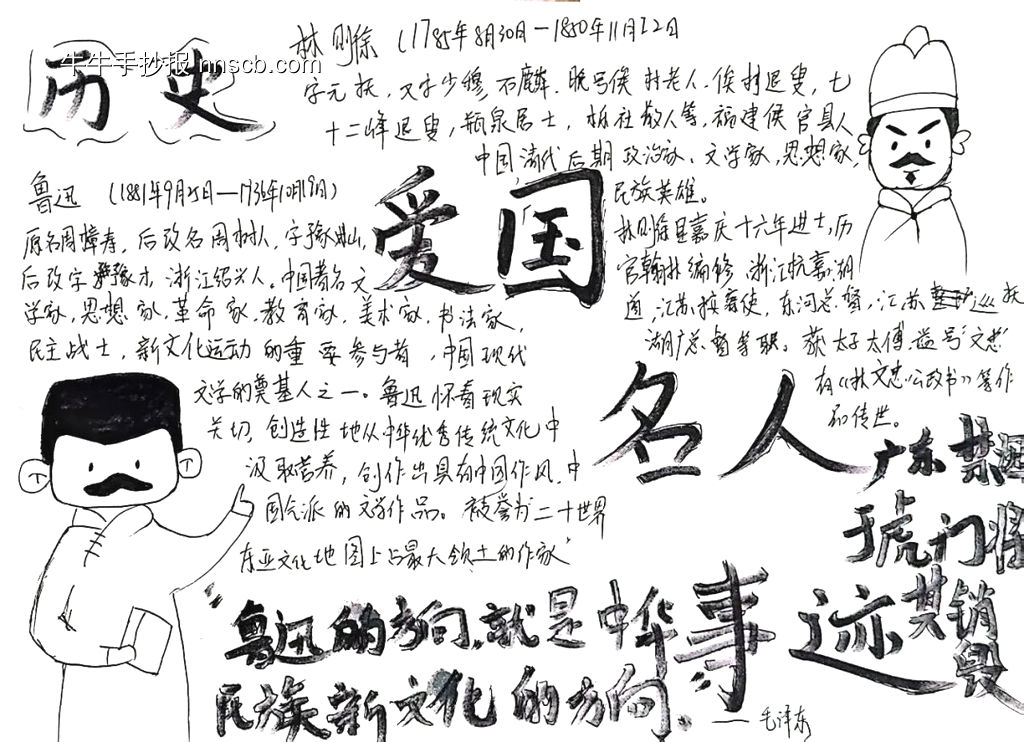 历史
牛牛手抄报 nnscb.com
林则徐（1785年8月30日—1850年11月22日
字元抚，又字少穆，石麟，晚号俟村老人、俟村退叟，七
十二峰退叟，瓶泉居士，栎社散人等，福建侯官县人
中国清代后期政治家，文学家，思想家，
民族英雄。
林则徐是嘉庆十六年进士，历
官翰林编修 浙江杭嘉湖
道，江苏按察使，东河总督，江苏巡抚
湖广总督等职。获太子太傅 谥号“文忠
有《林文忠公政书》等作
品传世。
爱国
鲁迅 （1881年9月25日—1936年10月19日）
原名周樟寿，后改名周树人，字豫山，
后改字豫才，浙江绍兴人。中国著名文
学家，思想家，革命家，教育家，美术家，书法家，
民主战士，新文化运动的重要参与者，中国现代
文学的奠基人之一。鲁迅怀着现实
关切，创造性地从中华优秀传统文化中
汲取营养，创作出具有中国作风、中
国气派的文学作品。被誉为二十世界
东亚文化地图上占最大领土的作家”
名人
事迹
广东禁烟
于虎门将
其销
毁
“鲁迅的方向，就是中华
民族新文化的方向
——毛泽东